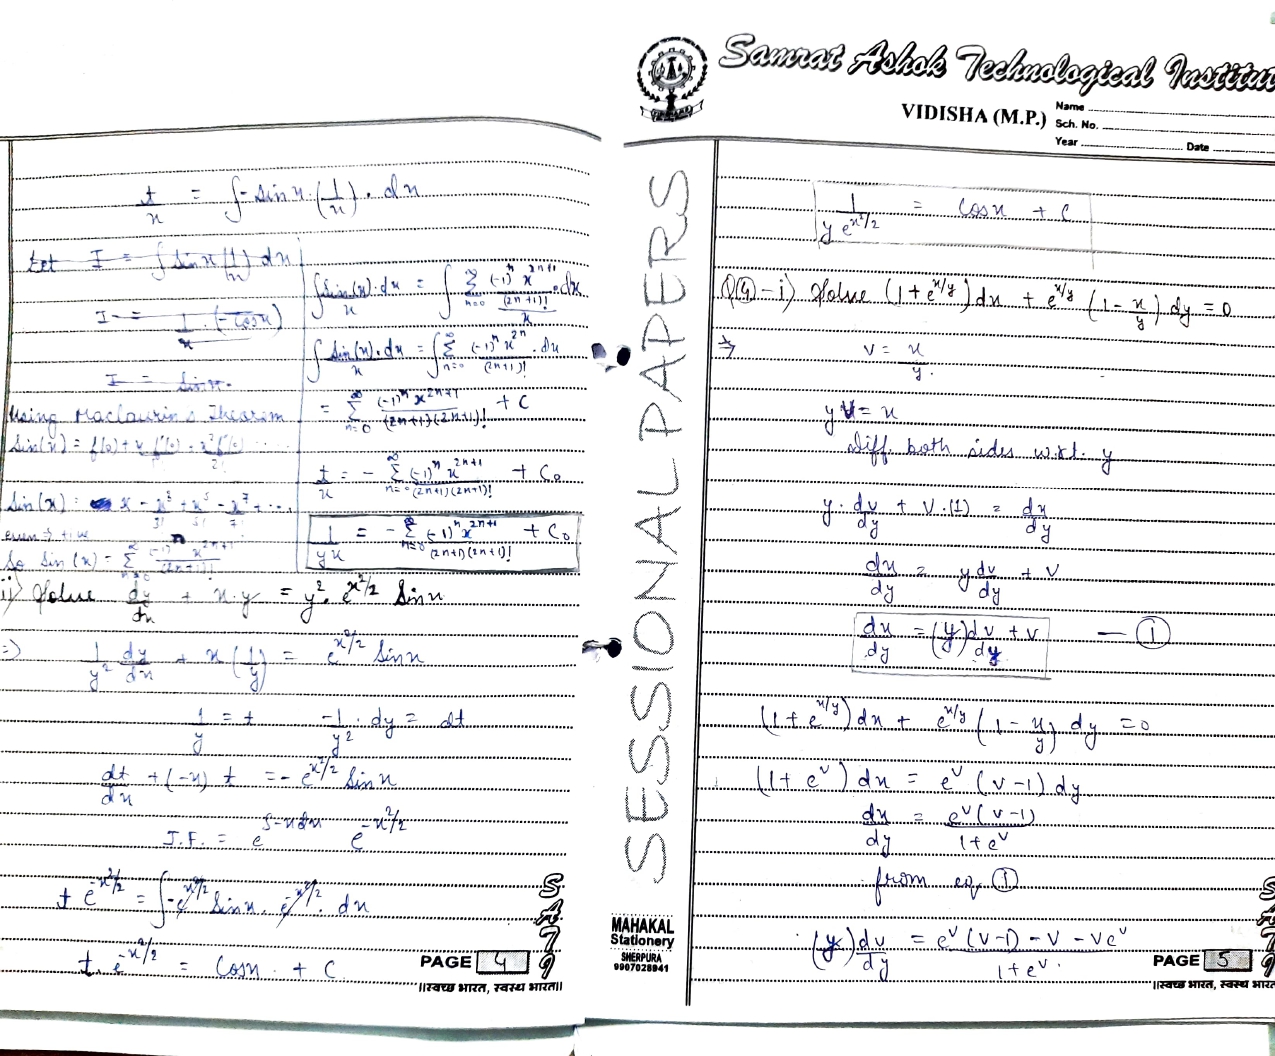 t/x = ∫ - Sin x (1/x) . dx
Let I = ∫ Sin x (1/x) dx
I = 1/x . (-Cosx)
I = Sin x.
Using Maclaurin's Theorem
Sin(x) = x - x³/3! + x⁵/5! - x⁷/7! + ...
So Sin (x) = Σ_{n=0}^{∞} (-1)ⁿ x^{2n+1} / (2n+1)!
∫ Sin(x)/x . dx = ∫ Σ_{n=0}^{∞} (-1)ⁿ x^{2n+1} / (2n+1)! / x . dx
∫ Sin(x)/x . dx = ∫ Σ_{n=0}^{∞} (-1)ⁿ x^{2n} / (2n+1)! . dx
= Σ_{n=0}^{∞} (-1)ⁿ x^{2n+1} / (2n+1)(2n+1)! + C
t/x = - Σ_{n=0}^{∞} (-1)ⁿ x^{2n+1} / (2n+1)(2n+1)! + C₀
1/yx = - Σ_{n=0}^{∞} (-1)ⁿ x^{2n+1} / (2n+1)(2n+1)! + C₀
ii) Solve dy/dx + x.y = y². e^{x²/2} Sin x
=> 1/y² dy/dx + x (1/y) = e^{x²/2} Sin x
1/y = t -1/y² . dy = dt
dt/dx + (-x) t = - e^{x²/2} Sin x
I.F. = e^{∫-xdx} e^{-x²/2}
t e^{-x²/2} = ∫ -e^{x²/2} Sin x . e^{-x²/2} . dx
t. e^{-x²/2} = Cosx . + C
PAGE 4
SATI
॥स्वच्छ भारत, स्वस्थ भारत॥
SESSIONAL PAPERS
MAHAKAL
Stationery
SHERPURA
9907028941
Samrat Ashok Technological Institut
VIDISHA (M.P.)
Name
Sch. No.
Year Date
1 / y e^{x²/2} = Cosx + C
Q④-i) Solve (1+e^{x/y}) dx + e^{x/y} (1 - x/y) dy = 0
=> v = x/y.
y v = x
Diff. both sides w.r.t. y
y. dv/dy + v.(1) = dx/dy
dx/dy = y dv/dy + v
dx/dy = (y) dv/dy + v — ①
(1+e^{x/y}) dx + e^{x/y} (1 - x/y) dy = 0
(1+e^v) dx = e^v (v-1) dy
dx/dy = e^v (v-1) / 1+e^v
from eq. ①
(y) dv/dy = e^v (v-1) - v - ve^v / 1+e^v.
PAGE 5
SATI
॥स्वच्छ भारत, स्वस्थ भारत